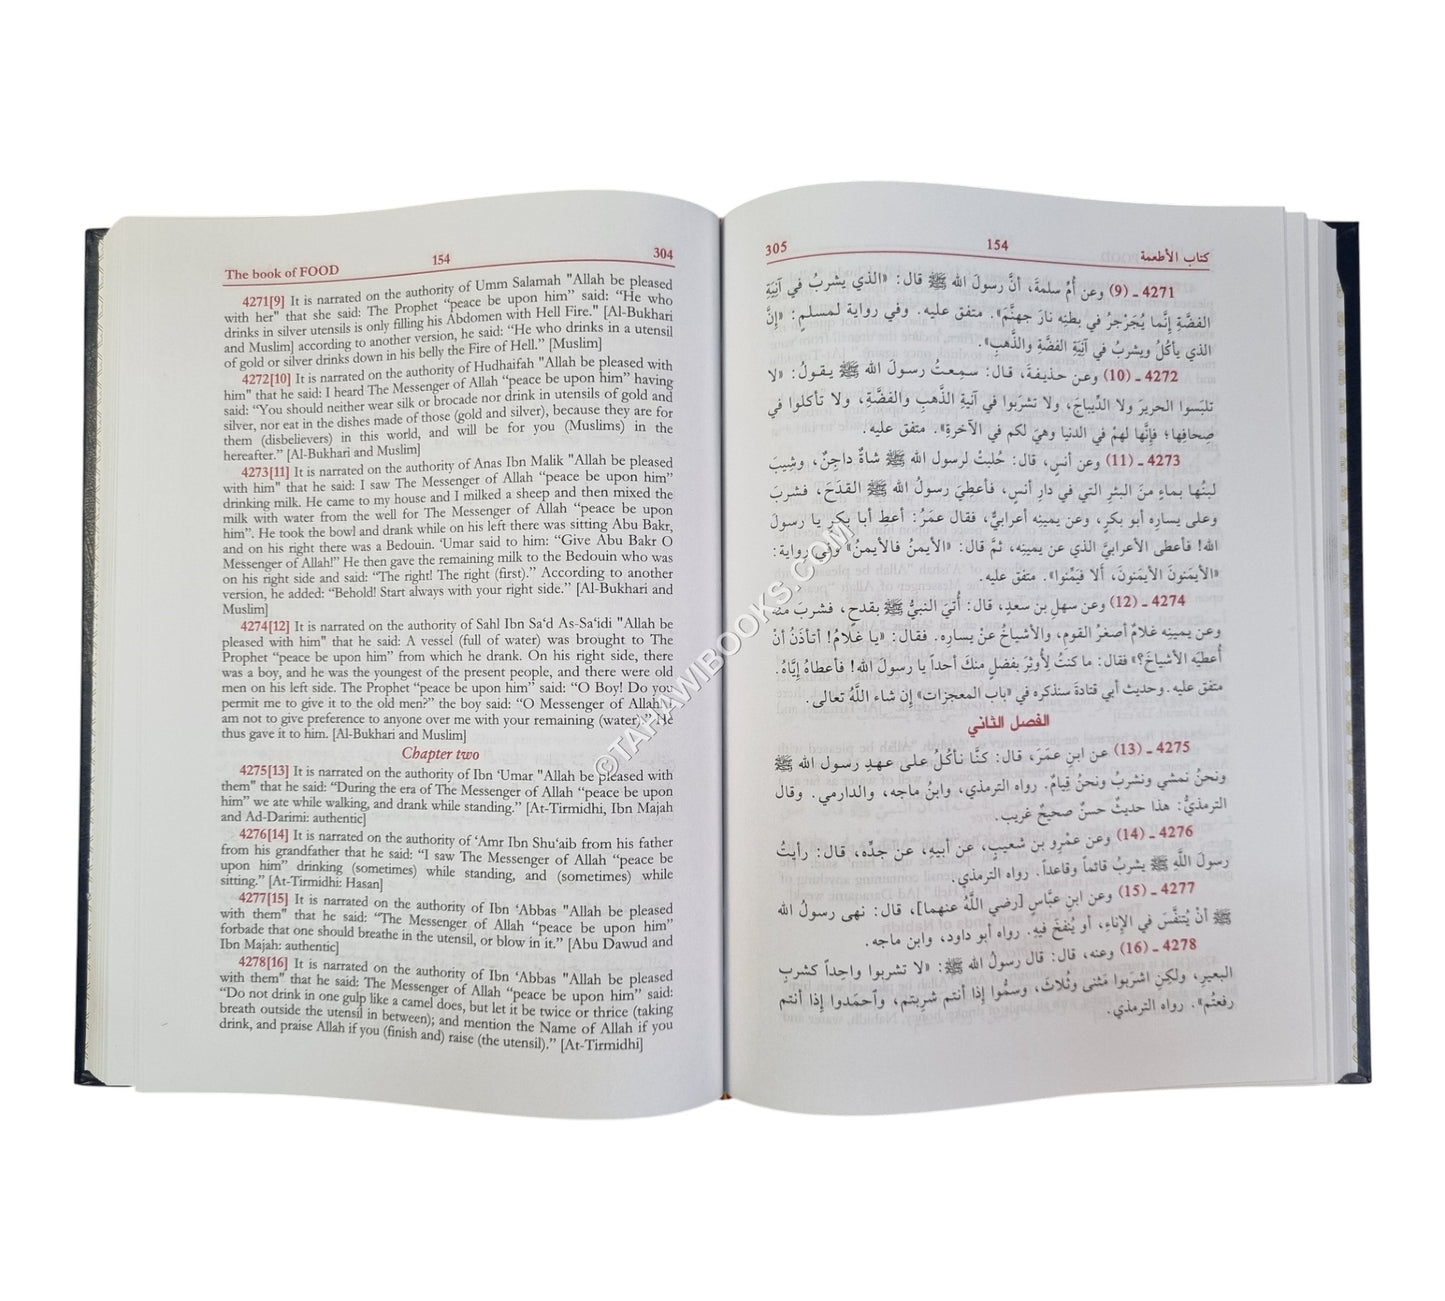 The book of FOOD 154 304
4271[9] It is narrated on the authority of Umm Salamah "Allah be pleased
with her" that she said: The Prophet “peace be upon him” said: “He who
drinks in silver utensils is only filling his Abdomen with Hell Fire." [Al-Bukhari
and Muslim] according to another version, he said: “He who drinks in a utensil
of gold or silver drinks down in his belly the Fire of Hell.” [Muslim]
4272[10] It is narrated on the authority of Hudhaifah "Allah be pleased with
him" that he said: I heard The Messenger of Allah “peace be upon him” having
said: “You should neither wear silk or brocade nor drink in utensils of gold and
silver, nor eat in the dishes made of those (gold and silver), because they are for
them (disbelievers) in this world, and will be for you (Muslims) in the
hereafter.” [Al-Bukhari and Muslim]
4273[11] It is narrated on the authority of Anas Ibn Malik "Allah be pleased
with him" that he said: I saw The Messenger of Allah “peace be upon him”
drinking milk. He came to my house and I milked a sheep and then mixed the
milk with water from the well for The Messenger of Allah “peace be upon
him”. He took the bowl and drank while on his left there was sitting Abu Bakr,
and on his right there was a Bedouin. ‘Umar said to him: “Give Abu Bakr O
Messenger of Allah!” He then gave the remaining milk to the Bedouin who was
on his right side and said: “The right! The right (first).” According to another
version, he added: “Behold! Start always with your right side.” [Al-Bukhari and
Muslim]
4274[12] It is narrated on the authority of Sahl Ibn Sa‘d As-Sa‘idi "Allah be
pleased with him" that he said: A vessel (full of water) was brought to The
Prophet “peace be upon him” from which he drank. On his right side, there
was a boy, and he was the youngest of the present people, and there were old
men on his left side. The Prophet “peace be upon him” said: “O Boy! Do you
permit me to give it to the old men?” the boy said: “O Messenger of Allah! I
am not to give preference to anyone over me with your remaining (water).” He
thus gave it to him. [Al-Bukhari and Muslim]
Chapter two
4275[13] It is narrated on the authority of Ibn ‘Umar "Allah be pleased with
them" that he said: “During the era of The Messenger of Allah “peace be upon
him” we ate while walking, and drank while standing.” [At-Tirmidhi, Ibn Majah
and Ad-Darimi: authentic]
4276[14] It is narrated on the authority of ‘Amr Ibn Shu‘aib from his father
from his grandfather that he said: “I saw The Messenger of Allah “peace be
upon him” drinking (sometimes) while standing, and (sometimes) while
sitting.” [At-Tirmidhi: Hasan]
4277[15] It is narrated on the authority of Ibn ‘Abbas "Allah be pleased
with them" that he said: “The Messenger of Allah “peace be upon him”
forbade that one should breathe in the utensil, or blow in it.” [Abu Dawud and
Ibn Majah: authentic]
4278[16] It is narrated on the authority of Ibn ‘Abbas "Allah be pleased
with them" that he said: The Messenger of Allah “peace be upon him” said:
“Do not drink in one gulp like a camel does, but let it be twice or thrice (taking
breath outside the utensil in between); and mention the Name of Allah if you
drink, and praise Allah if you (finish and) raise (the utensil).” [At-Tirmidhi]
كتاب الأطعمة 154 305
4271 ـ (9) وعن أُمِّ سلمةَ، أنَّ رسولَ الله ﷺ قال: «الذي يشربُ في آنيَةِ
الفضَّةِ إِنَّما يُجَرْجرُ في بطنِه نارَ جهنَّمَ». متفق عليه. وفي رواية لمسلم: «إِنَّ
الذي يأكُلُ ويشربُ في آنِيَةِ الفضَّةِ والذَّهبِ».
4272 ـ (10) وعن حذيفةَ، قال: سمِعتُ رسولَ الله ﷺ يقولُ: «لا
تلبَسوا الحريرَ ولا الدِّيباجَ، ولا تشرَبوا في آنيةِ الذَّهبِ والفضَّةِ، ولا تأكلوا في
صِحافِها؛ فإِنَّها لهمْ في الدنيا وهيَ لكم في الآخرةِ». متفق عليه.
4273 ـ (11) وعن أنسٍ، قال: حُلبتْ لرسولِ الله ﷺ شاةٌ داجنٌ، وشِيبَ
لبنُها بماءٍ منَ البئرِ التي في دارِ أنسٍ، فأعطِيَ رسولُ الله ﷺ القدَحَ، فشربَ
وعلى يسارِه أبو بكرٍ، وعن يمينِه أعرابيٌّ، فقال عمَرُ: أعطِ أبا بكرٍ يا رسولَ
الله! فأعطى الأعرابيَّ الذي عن يمينِه، ثمَّ قال: «الأيمنُ فالأيمنُ» وفي رواية:
«الأيمَنونَ الأيمَنونَ، أَلا فَيَمِّنوا». متفق عليه.
4274 ـ (12) وعن سهلِ بن سعدٍ، قال: أُتيَ النبيُّ ﷺ بقدحٍ، فشربَ منه
وعن يمينِه غلامٌ أصغرُ القومِ، والأشياخُ عنْ يسارِه. فقال: «يا غلامُ! أتأذَنُ أنْ
أُعطيَه الأشياخَ؟» فقال: ما كنتُ لِأُوثِرَ بفضلٍ منكَ أحداً يا رسولَ الله! فأعطاهُ إِيَّاه.
متفق عليه. وحديث أبي قتادةَ سنذكره في «باب المعجزات» إِن شاء اللَّهُ تعالى.
الفصل الثاني
4275 ـ (13) عن ابنِ عمَرَ، قال: كنَّا نأكُلُ على عهدِ رسولِ الله ﷺ
ونحنُ نمشي ونشربُ ونحنُ قِيامٌ. رواه الترمذي، وابنُ ماجه، والدارمي. وقال
الترمذيُّ: هذا حديثٌ حسنٌ صحيحٌ غريب.
4276 ـ (14) وعن عمْرِو بن شعيبٍ، عن أبيهِ، عن جدِّه، قال: رأيتُ
رسولَ اللَّهِ ﷺ يشربُ قائماً وقاعداً. رواه الترمذي.
4277 ـ (15) وعن ابنِ عبَّاسٍ [رضي اللَّهُ عنهما]، قال: نهى رسولُ الله
ﷺ أنْ يُتنفَّسَ في الإِناءِ، أو يُنفخَ فيهِ. رواه أبو داود، وابن ماجه.
4278 ـ (16) وعنه، قال: قال رسولُ الله ﷺ: «لا تشربوا واحِداً كشربِ
البعيرِ، ولكِنِ اشرَبوا مَثنى وثُلاثَ، وسمُّوا إِذا أنتم شرِبتم، وٱحمَدوا إِذا أنتم
رفعتُم». رواه الترمذي.
©TARAWIBOOKS.COM